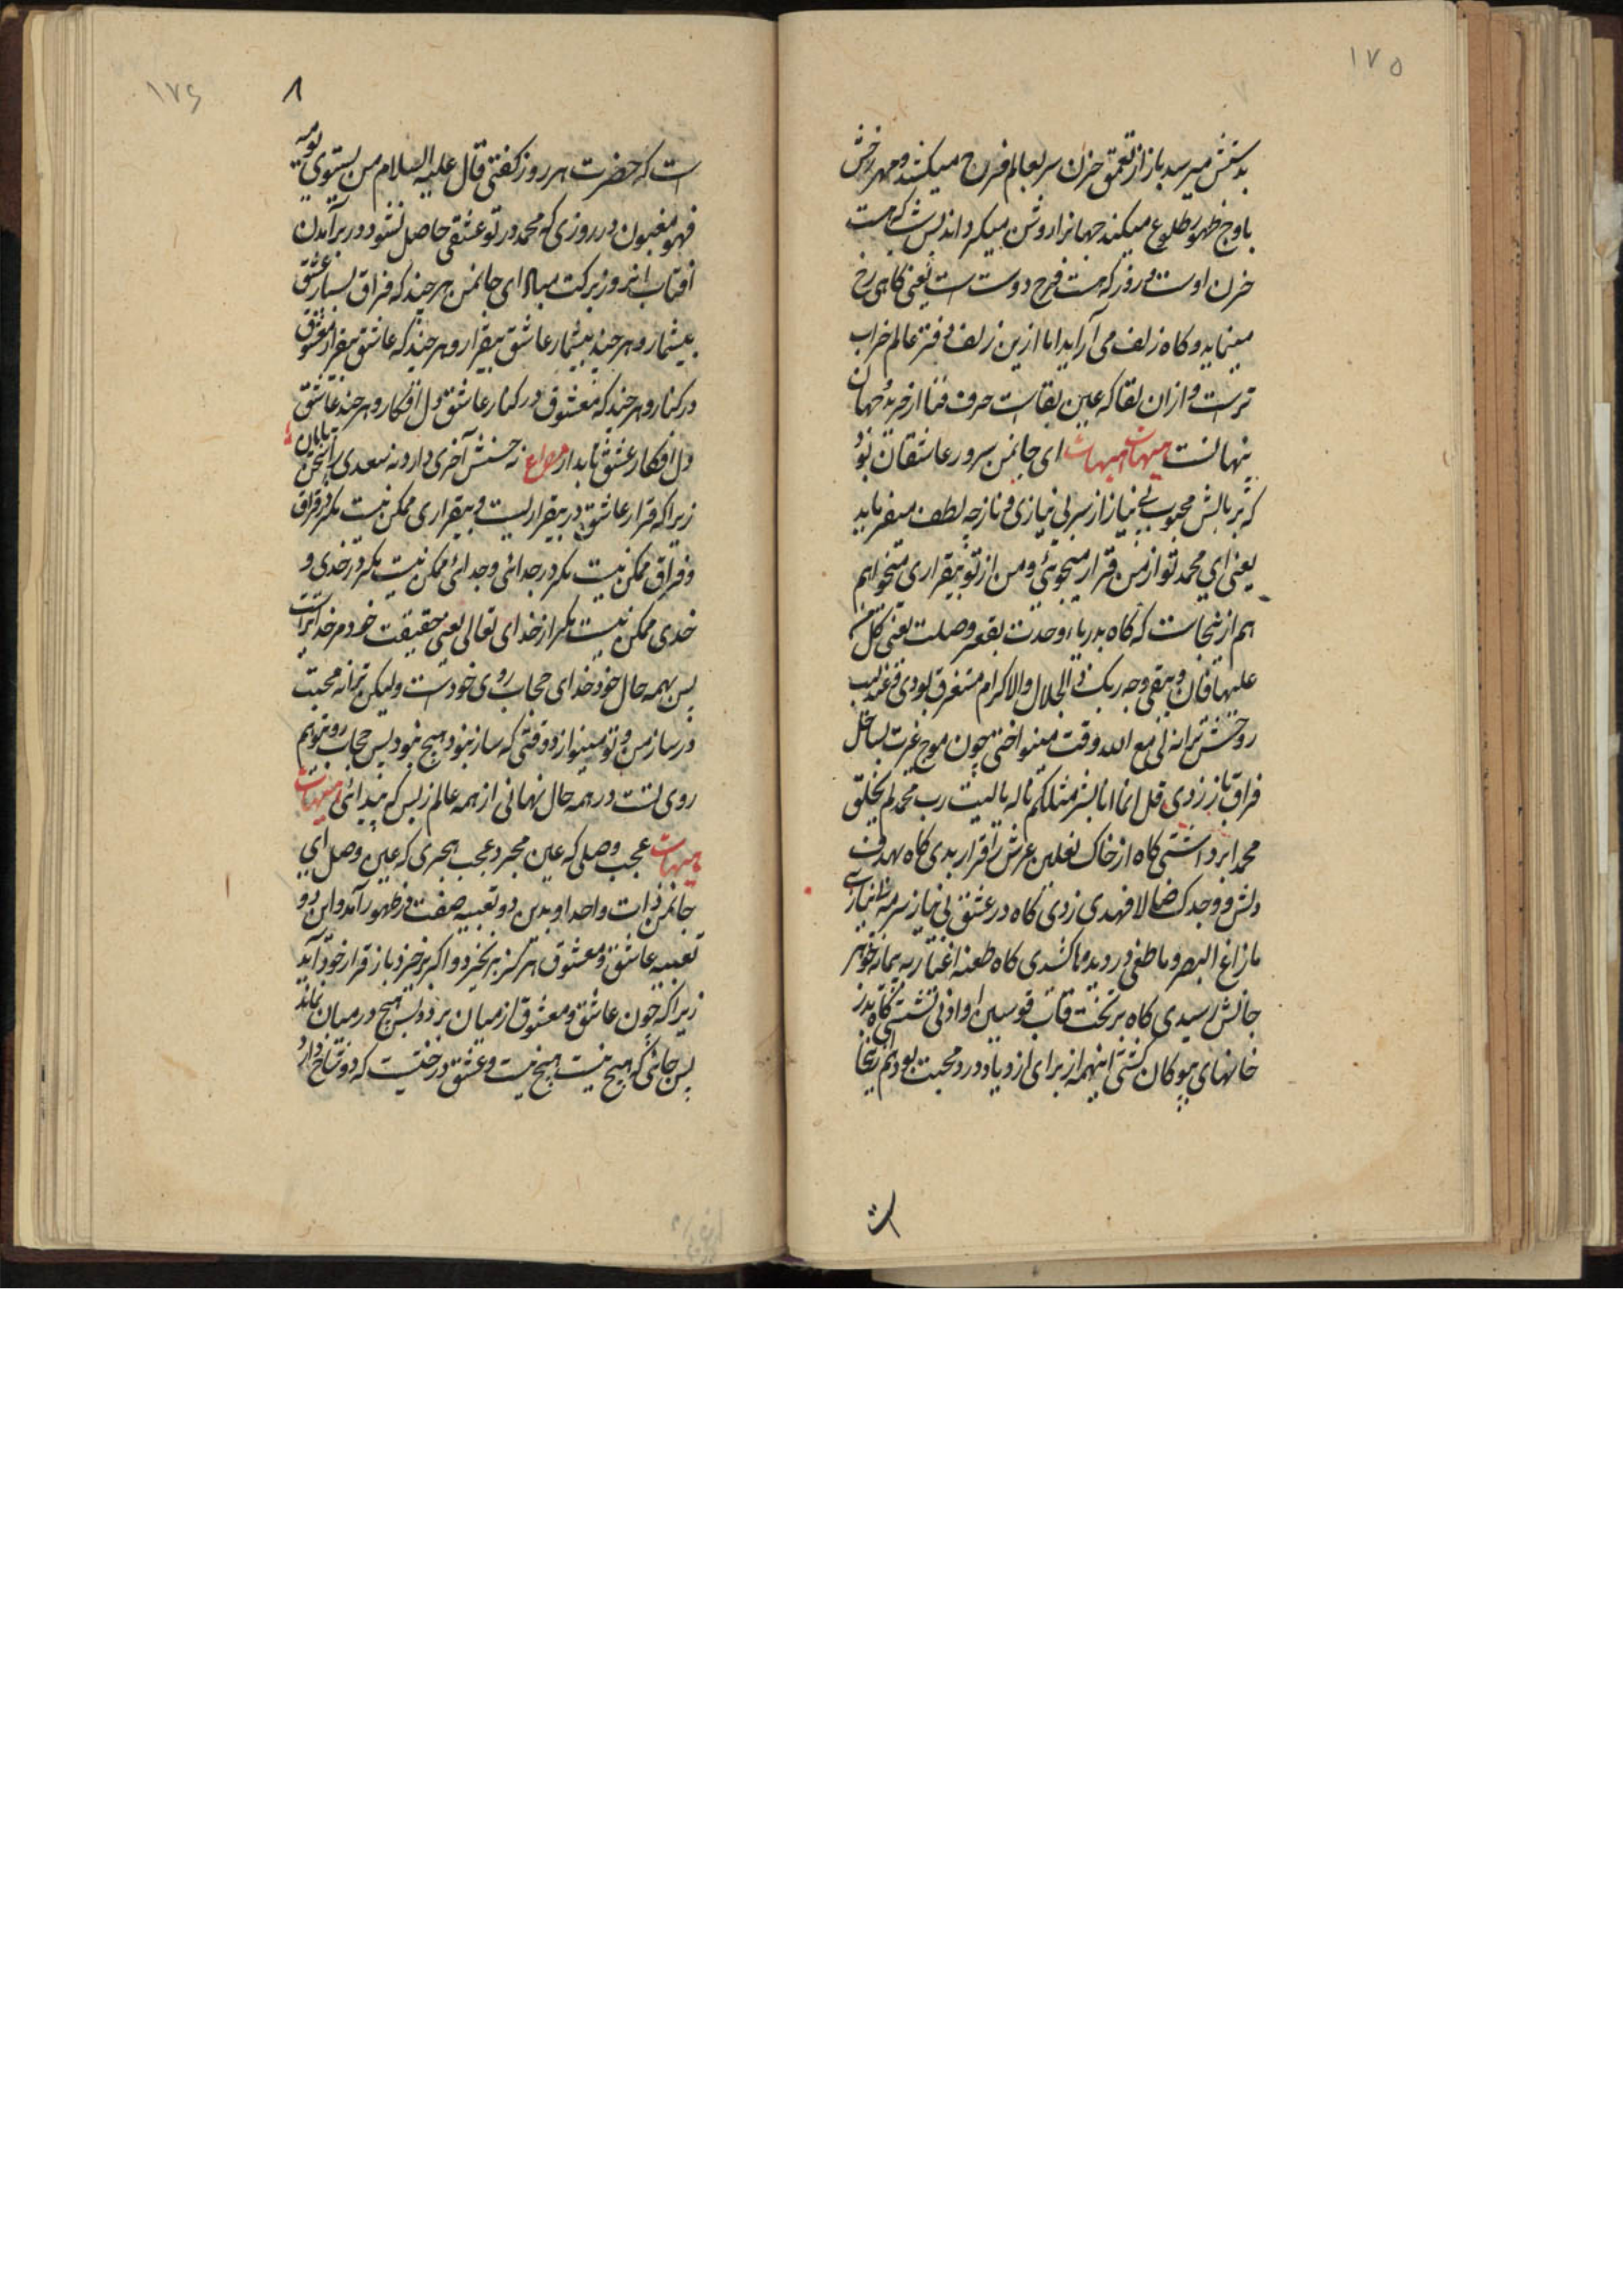 ۱۷۵
بدستش میرسد باز از تعمق حزن سر بعالم فرح میکشد و مهر رخش
باوج ظهور طلوع میکند جهانرا روشن میکرداند پس شب که هست
حزن اوست و روز که هست فرح دوست است یعنی کاهی رخ
مینماید و کاه زلف می آراید اما ازین زلف دفتر عالم خراب
ترست و ازان لقا که عین بقاست حرف فنا از خریده جهان
پنهانست هیهات هیهات ای جانمن سرور عاشقان تو
که بر بالش محبوب بی نیاز از سر بی نیازی و ناز چه لطف میفرماید
یعنی ای محمد تو از من قرار میجوئی و من از تو بیقراری میخواهم
هم ازینجاست که کاه بدریاء وحدت بقعر وصلت یعنی کل من
علیها فان و یبقی وجه ربک ذو الجلال والاکرام مستغرق بودی و عندلیب
روحش ترانه لی مع الله وقت مینواختی چون موج غیرت بساحل
فراق باز زدی قل انما انا بشر مثلکم ناله یا لیت رب محمد لم یخلق
محمدا برداشتی کاه از خاک نعلین عرش را قرار بدی کاه بهدف
دلش ووجدک ضالا فهدی زدی کاه در عشق بی نیاز سرمه
مازاغ البصر و ماطغی در دیدها کشدی کاه طعنه اغیار به پیمانه
جانش رسیدی کاه بر تخت قاب قوسین او ادنی نشستی کاه بدر
خانهای بیوکان کشتی اینهمه از برای ازدیاد درد محبت بود هم زینجا
است
۱۷۶
۸
ست که حضرت هر روز کفتی قال علیه السلام من یستوی یومیه
فهو مغبون در روزی که محمد در تو عشقی حاصل نشود در برآمدن
افتاب انروز برکت مباد ای جانمن هر چند که فراق بسیار عشق
بیشمار و هر چند بیشمار عاشق بیقرار و هر چند که عاشق بیقرار معشوق
در کنار و هر چند که معشوق در کنار عاشق دل افکار و هر چند عاشق
دل افکار عشق نابدار مصراع نه حسنش آخری دارد نه سعدی را سخن پایان
زیراکه قرار عاشق در بیقراریست و بیقراری ممکن نیست مکر در فراق
و فراق ممکن نیست مکر در جدائی و جدائی ممکن نیست مکر در خدی و
خدی ممکن نیست مکر از خدای تعالی یعنی حقیقت خود مر خدایراست
پس بهمه حال خود خدای حجاب روی خودست ولیکن ترانه محبت
در ساز من و تو مینوازد وقتی که ساز نبود هیچ نبود پس حجاب روتوهم
روی تست در همه حال نهانی از همه عالم زبس که پیدائی هیهات
هیهات عجب وصلی که عین هجر و عجب هجری که عین وصل ای
جانمن ذات واحد او بدین دو تعبیه صفت در ظهور آمد و این دو
تعبیه عاشق و معشوق هرکز برنخیزد و اکر برخیزد باز قرار خود آید
زیراکه چون عاشق و معشوق از میان برد پس هیچ در میان نماند
پس جائی که هیچ نیست هیچ نیست و عشق درختیست که دو شاخ دارد